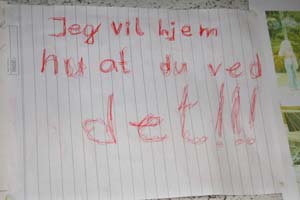 Jeg vil hjem
nu at du ved
det!!!